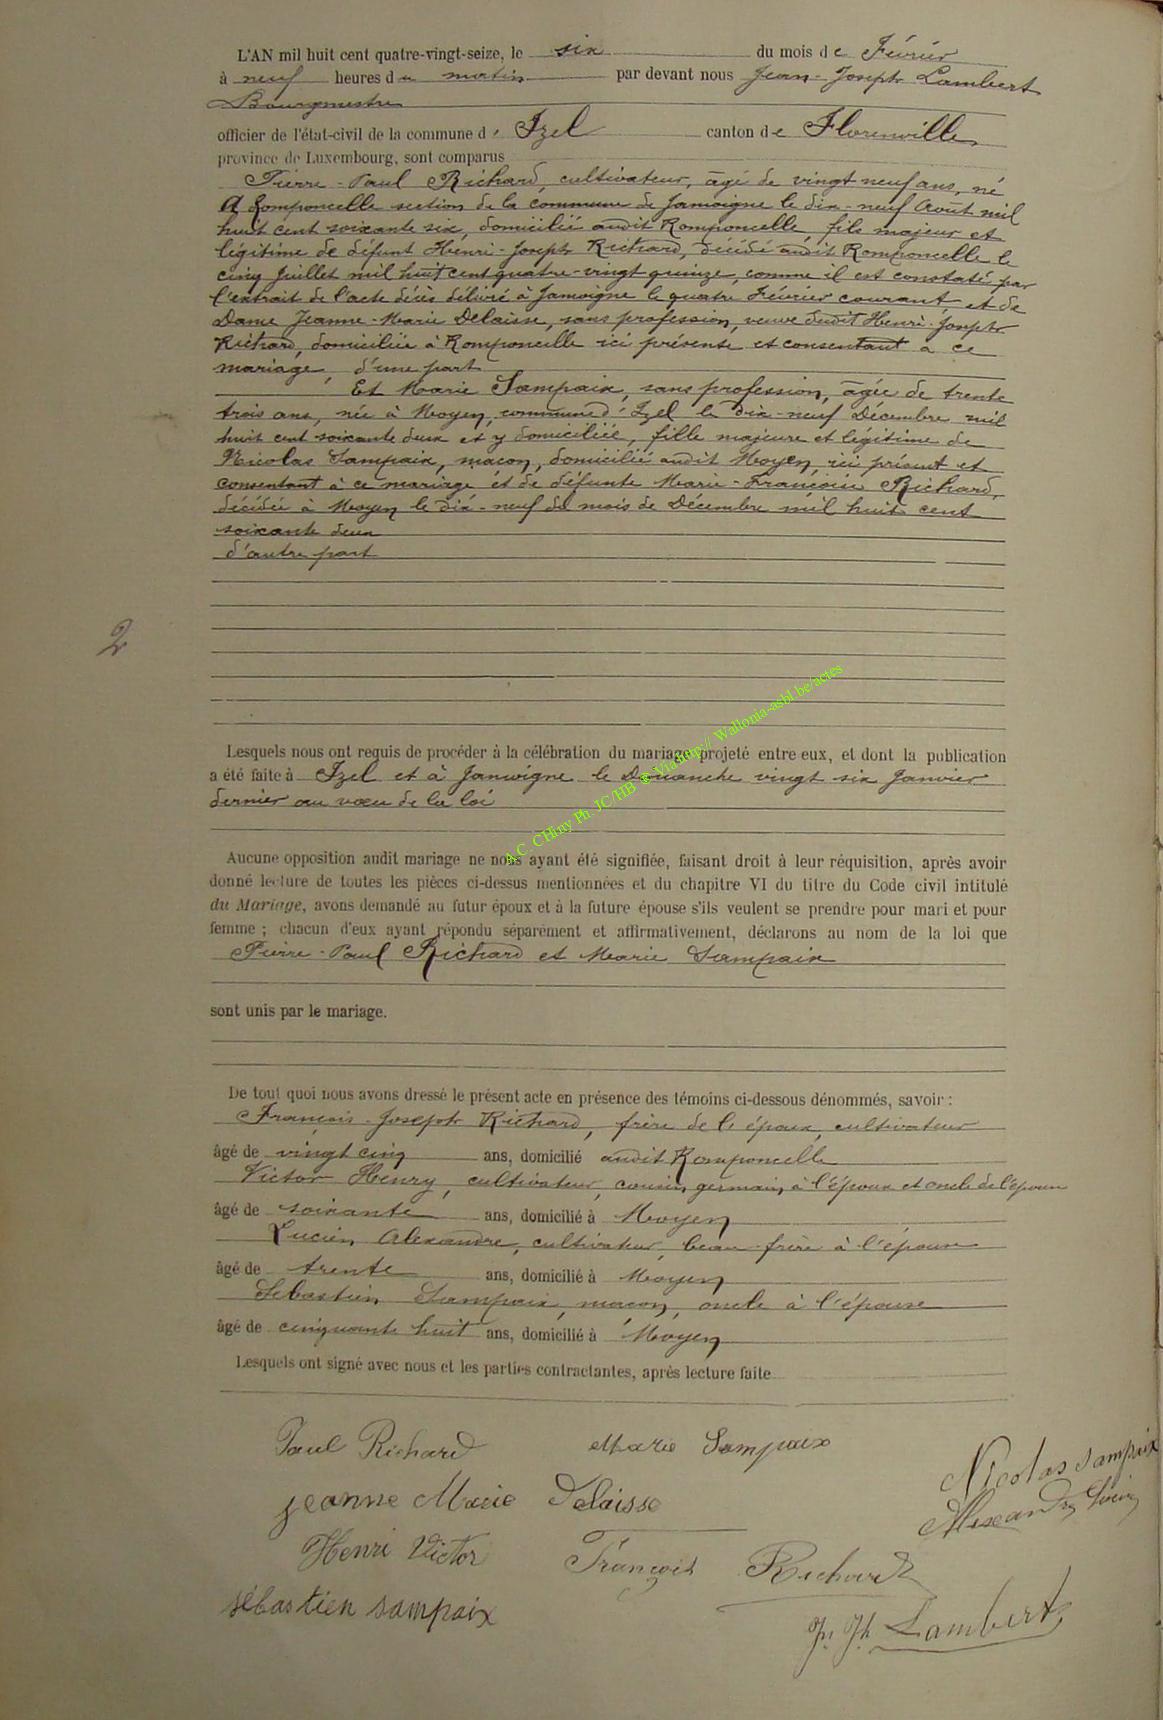 L'AN mil huit cent quatre-vingt-seize, le six du mois de Février
à neuf heures du matin par devant nous Jean-Joseph Lambert
Bourgmestre
officier de l'état-civil de la commune d' Izel canton de Florenville
province de Luxembourg, sont comparus
Pierre-Paul Richard, cultivateur, âgé de vingt neuf ans, né
à Romponcelle section de la commune de Jamoigne le dix-neuf Août mil
huit cent soixante six, domicilié audit Romponcelle, fils majeur et
légitime de défunt Henri-Joseph Richard, décédé audit Romponcelle le
cinq Juillet mil huit cent quatre-vingt quinze, comme il est constaté par
l'extrait de l'acte décès délivré à Jamoigne le quatre Février courant, et de
Dame Jeanne-Marie Delaisse, sans profession, veuve dudit Henri-Joseph
Richard, domiciliée à Romponcelle ici présente et consentant à ce
mariage, d'une part
Et Marie Sampaix, sans profession, âgée de trente
trois ans, née à Moyen, commune d'Izel le dix-neuf Décembre mil
huit cent soixante deux et y domiciliée, fille majeure et légitime de
Nicolas Sampaix, maçon, domicilié audit Moyen, ici présent et
consentant à ce mariage et de défunte Marie-Françoise Richard,
décédée à Moyen le dix-neuf du mois de Décembre mil huit cent
soixante deux
d'autre part
2
Lesquels nous ont requis de procéder à la célébration du mariage projeté entre eux, et dont la publication
a été faite à Izel et à Jamoigne le Dimanche vingt six Janvier
dernier au vœu de la loi
A.C. CHiny Ph. JC/HB © Via http:// Wallonia-asbl.be/actes
Aucune opposition audit mariage ne nous ayant été signifiée, faisant droit à leur réquisition, après avoir
donné lecture de toutes les pièces ci-dessus mentionnées et du chapitre VI du titre du Code civil intitulé
du Mariage, avons demandé au futur époux et à la future épouse s'ils veulent se prendre pour mari et pour
femme ; chacun d'eux ayant répondu séparément et affirmativement, déclarons au nom de la loi que
Pierre-Paul Richard et Marie Sampaix
sont unis par le mariage.
De tout quoi nous avons dressé le présent acte en présence des témoins ci-dessous dénommés, savoir :
François-Joseph Richard, frère de l'époux, cultivateur
âgé de vingt cinq ans, domicilié audit Romponcelle
Victor Henry, cultivateur, cousin germain à l'époux et oncle de l'épouse
âgé de soixante ans, domicilié à Moyen
Lucien Alexandre, cultivateur, beau-frère à l'époux
âgé de trente ans, domicilié à Moyen
Sébastien Sampaix, maçon, oncle à l'épouse
âgé de cinquante huit ans, domicilié à Moyen
Lesquels ont signé avec nous et les parties contractantes, après lecture faite
Paul Richard Marie Sampaix
Nicolas Sampaix
jeanne Marie Delaisse
Alexandre Lucien
Henri Victor François Richard
sébastien sampaix
Jn Jh Lambert